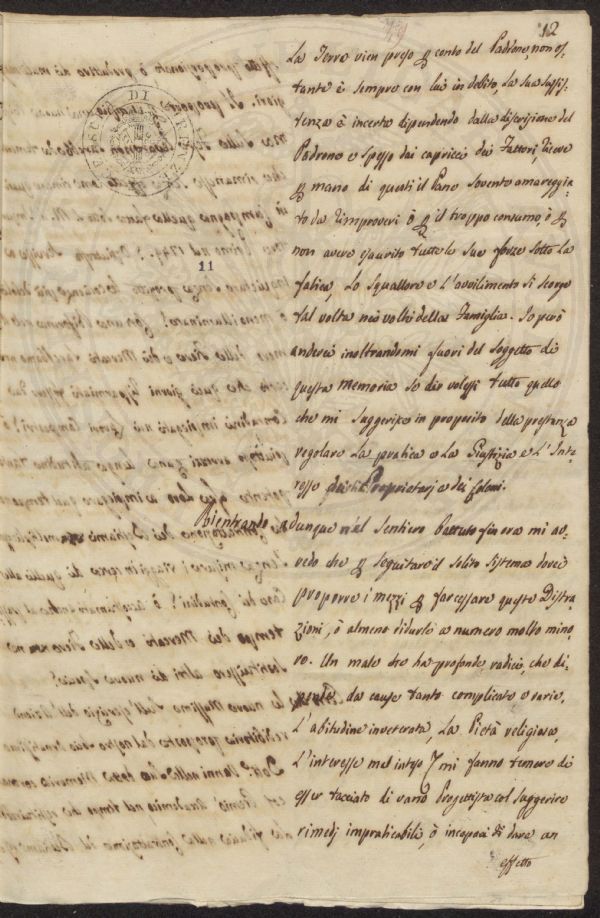 12
La Terra vien preso p conto del Padrone, non os-
tante è sempre con lui in debito, La sua sussis-
tenza è incerta dipendendo dalla discrizione del
Padrone e spesso dai capricci dei Fattori, riceve
p mano di questi il Pane sovente amareggia-
to da rimproveri ò p il troppo consumo, ò p
non avere esaurito tutte le sue forze sotto La
fatica, Lo squallore e L'avvilimento si scorge
tal volta nei volti della Famiglia. Io però
anderei inoltrandomi fuori del soggetto di
questa memoria se dir volessi tutto quello
che mi suggerisce in proposito della prestanza
regolare La pratica e La Giustizia e L'Inte-
resse dei Proprietarj e dei Coloni.
Rientrando adunque nel sentiero battuto fin ora mi av-
vedo che p seguitare il solito sistema dovrei
proporre i mezzi p far cessare queste Distra-
zioni, ò almeno ridurle a numero molto mino-
re. Un male che ha profonde radici, che di-
pende da cause tanto complicate e varie,
L'abitudine inveterata, La Pietà religiosa,
L'interesse mal inteso mi fanno temere di
esser tacciato di vano Progettista col suggerire
rimedj impraticabili, ò incapaci di dare un
effetto
11